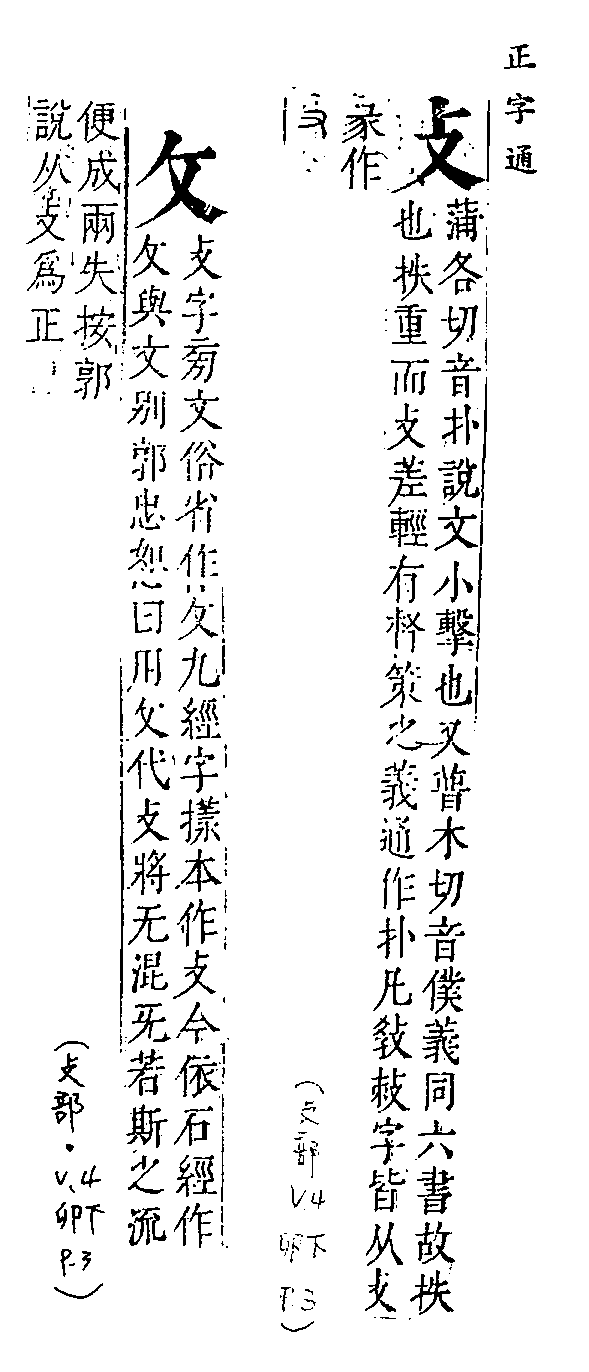 正字通
攴
蒲各切音扑說文小擊也又普木切音僕義同六書故抶
也抶重而攴差輕有策之義通作扑凡敎敍字皆从攴
篆作
(攴部 V.4 卯下 P.3)
攵
攴字旁文俗省作攵九經字㨾本作攴今依石經作
攵與文别郭忠恕曰用攵代攴將无混旡若斯之流
便成兩失按郭
說从攴爲正
(攴部·V.4 卯下 P.3)